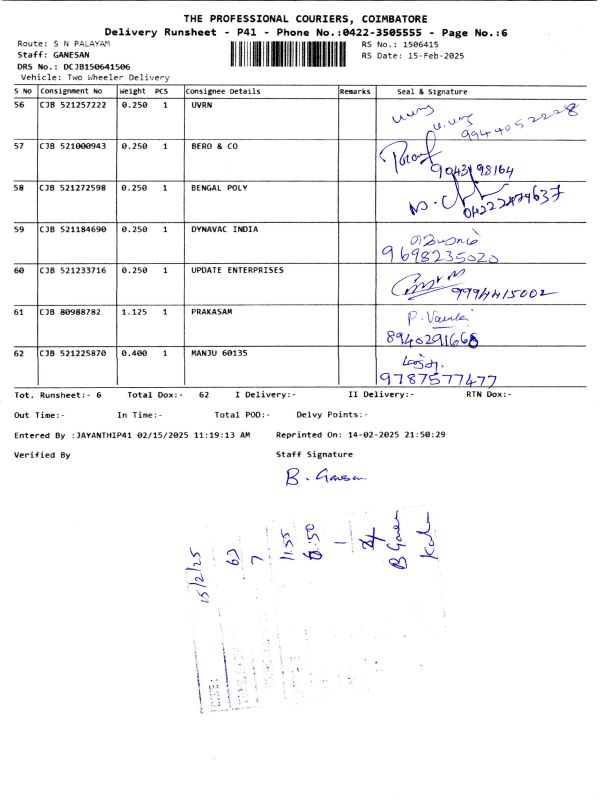 THE PROFESSIONAL COURIERS, COIMBATORE
Delivery Runsheet - P41 - Phone No.:0422-3505555 - Page No.:6
Route: S N PALAYAM RS No.: 1506415
Staff: GANESAN RS Date: 15-Feb-2025
DRS No.: DCJB150641506
Vehicle: Two Wheeler Delivery
S No Consignment No Weight PCS Consignee Details Remarks Seal & Signature
56 CJB 521257222 0.250 1 UVRN
9944052228
57 CJB 521000943 0.250 1 BERO & CO
9043198164
58 CJB 521272598 0.250 1 BENGAL POLY
04222474637
59 CJB 521184690 0.250 1 DYNAVAC INDIA
9698235020
60 CJB 521233716 0.250 1 UPDATE ENTERPRISES
9994415002
61 CJB 80988782 1.125 1 PRAKASAM
8940291668
62 CJB 521225870 0.400 1 MANJU 60135
9787577477
Tot. Runsheet:- 6 Total Dox:- 62 I Delivery:- II Delivery:- RTN Dox:-
Out Time:- In Time:- Total POD:- Delvy Points:-
Entered By :JAYANTHIP41 02/15/2025 11:19:13 AM Reprinted On: 14-02-2025 21:50:29
Verified By Staff Signature
B. Ganesan
15/2/25
62
7
11:55
6:50
1